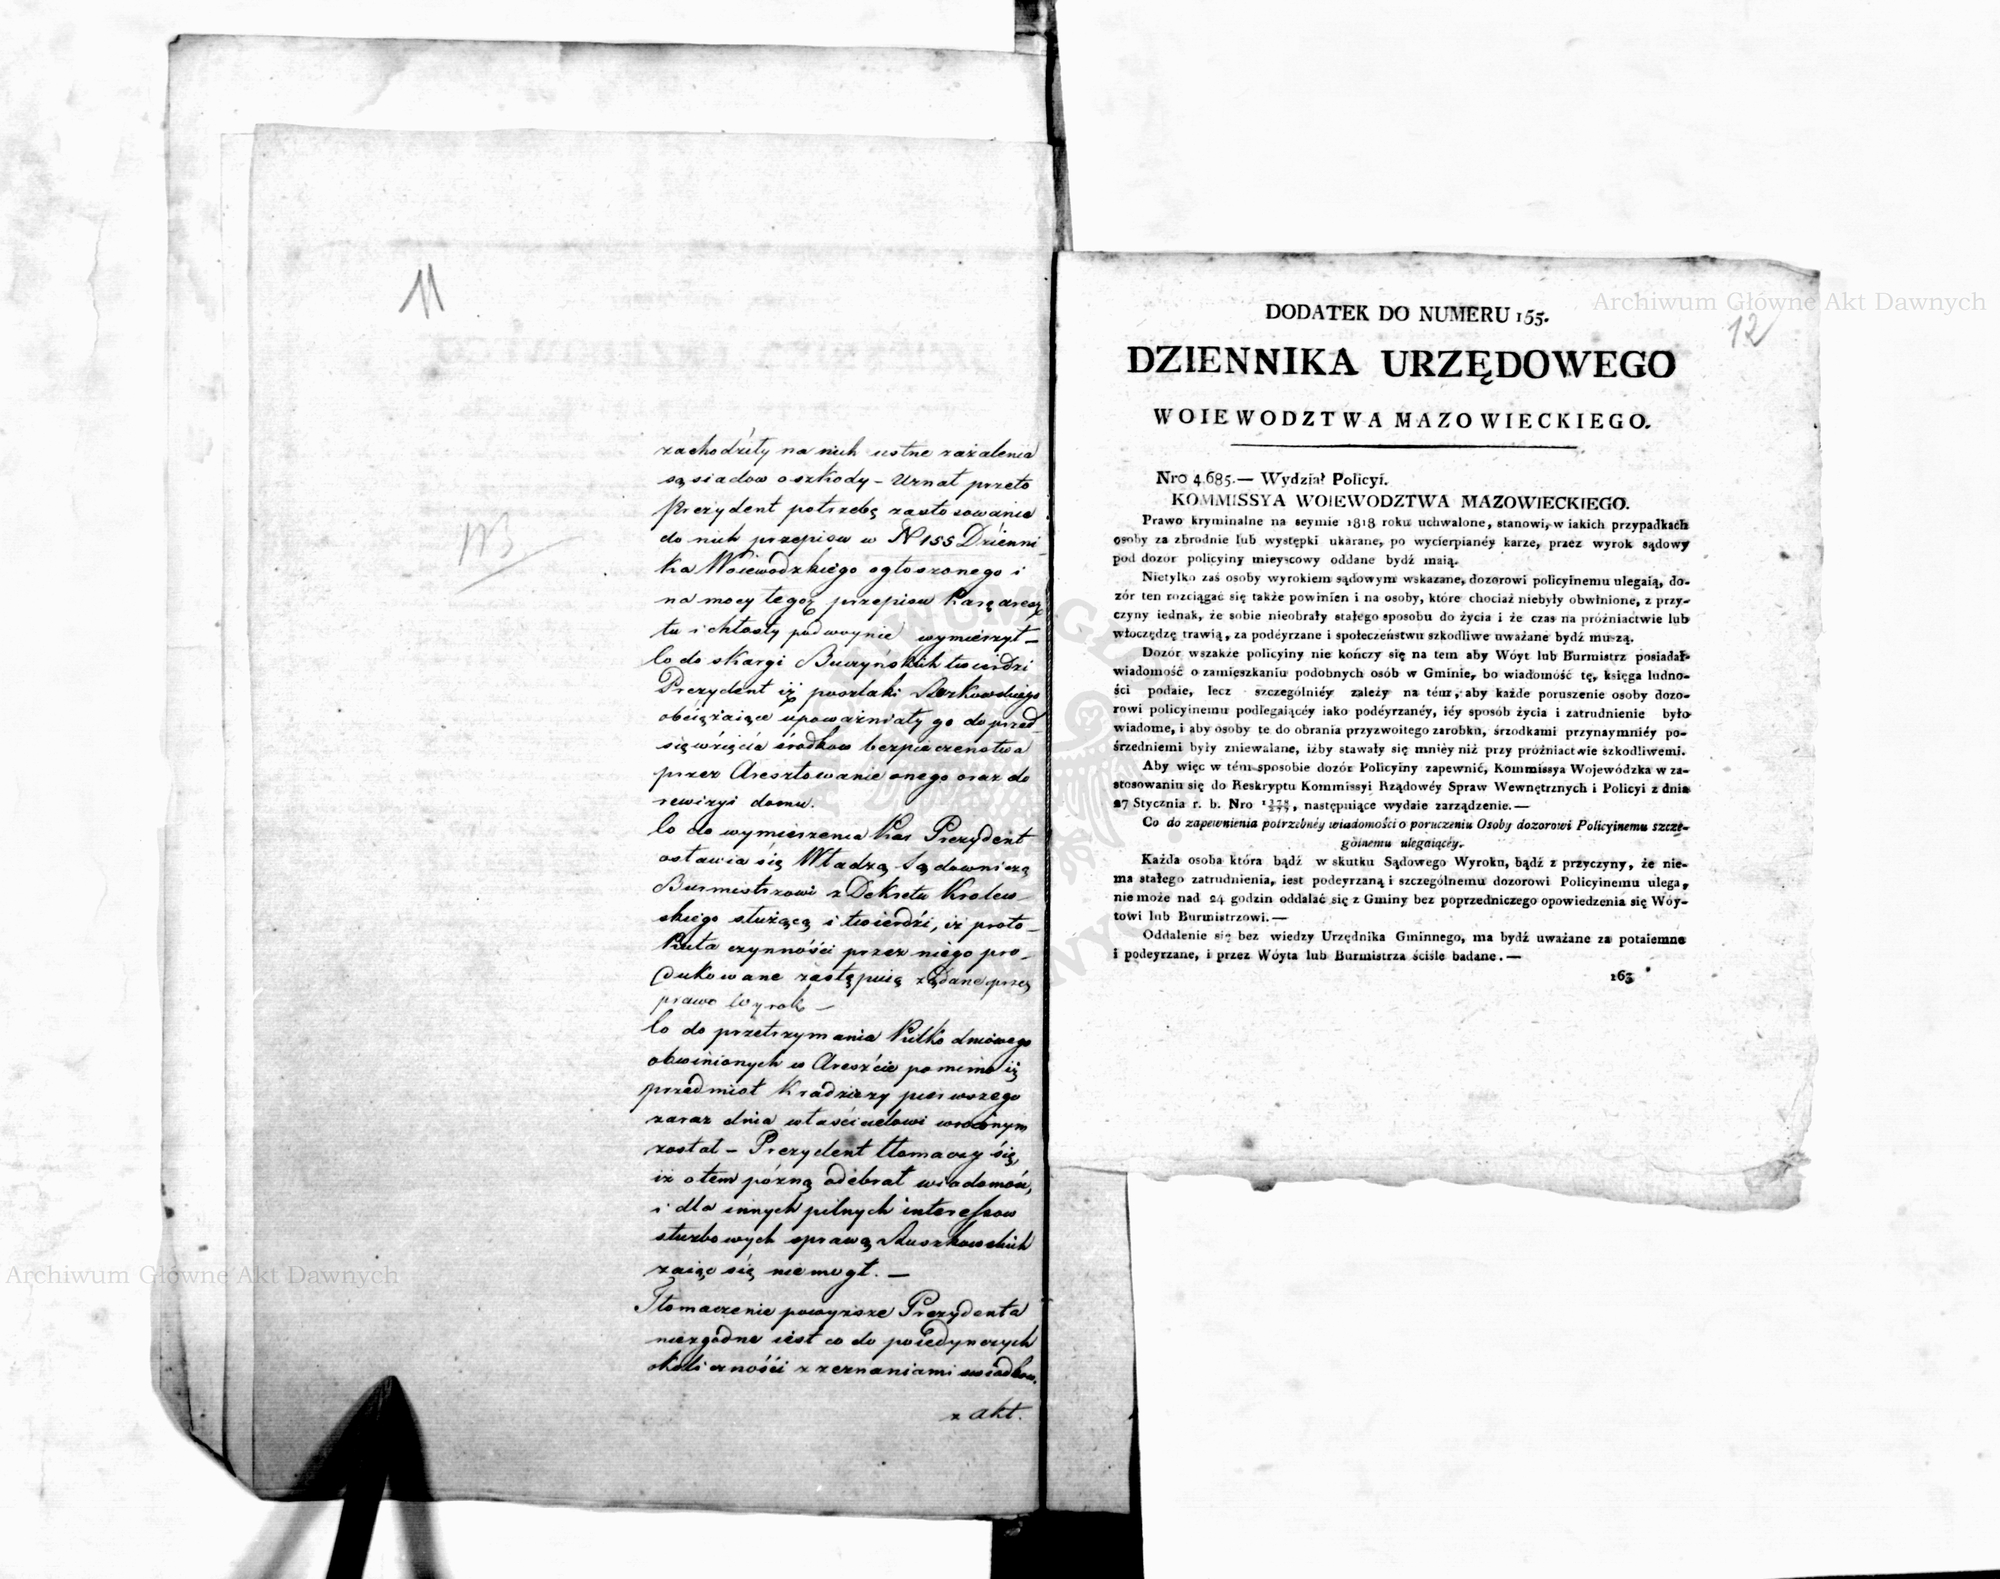 11
zachodziły na nich ustne zażalenia
sąsiadow o szkody – Uznał przeto
Prezydent potrzebę zastosowania
do nich przepisu w N 155 Dzienni-
ka Woiewodzkiego ogłoszonego i
na mocy tegoż przepisu karę aresz
tu i chłosty podwoynie wymierzył –
Co do skargi Buczyńskich twierdzi
Prezydent iż poszlaki
obciążaiące upoważniały go do przed-
sięwzięcia środkow bezpieczenstwa
przez Aresztowanie onego oraz do
rewizyi domu.
Co do wymierzenia kar Prezydent
ostawia się Władzą Sądowniczą
Burmistrzowi z Dekretu Krolew-
skiego służącą i twierdzi, iż proto-
kuła czynności przez niego pro-
dukowane zastępuią żądane przez
prawo Wyroki –
Co do przetrzymania kilko dniowego
obwinionych w Areszcie pomimo iż
przedmiot kradzieży pierwszego
zaraz dnia właścicielowi wroconym
został – Prezydent tłomaczy się,
iż o tem pózną odebrał wiadomość,
i dla innych pilnych interessow
służbowych sprawą
zaiąc się niemogł. –
Tłomaczenie powyższe Prezydenta
niezgodne iest co do poiedynczych
okoliczności z zeznaniami swiadkow.
z akt.
12
DODATEK DO NUMERU 155.
DZIENNIKA URZĘDOWEGO
WOIEWODZTWA MAZOWIECKIEGO.
Nro 4,685.— Wydział Policyi.
KOMMISSYA WOIEWODZTWA MAZOWIECKIEGO.
Prawo kryminalne na seymie 1818 roku uchwalone, stanowi, w iakich przypadkach
osoby za zbrodnie lub występki ukarane, po wycierpianéy karze, przez wyrok sądowy
pod dozór policyiny mieyscowy oddane bydź maią.
Nietylko zaś osoby wyrokiem sądowym wskazane, dozorowi policyinemu ulegaią, do-
zór ten rozciągać się także powinien i na osoby, które chociaż niebyły obwinione, z przy-
czyny iednak, że sobie nieobrały stałego sposobu do życia i że czas na próżniactwie lub
włóczędze trawią, za podéyrzane i społeczeństwu szkodliwe uważane bydź muszą.
Dozór wszakże policyiny nie kończy się na tem aby Wóyt lub Burmistrz posiadał
wiadomość o zamięszkaniu podobnych osób w Gminie, bo wiadomość tę, księga ludno-
ści podaie, lecz szczególniéy zależy na tém, aby każde poruszenie osoby dozo-
rowi policyinemu podlegaiącéy iako podéyrzanéy, iéy sposób życia i zatrudnienie było
wiadome, i aby osoby te do obrania przyzwoitego zarobku, śrzodkami przynaymniéy po-
śrzedniemi były zniewalane, iżby stawały się mniéy niż przy próżniactwie szkodliwemi.
Aby więc w tém sposobie dozór Policyiny zapewnić, Kommissya Wojewódzka w za-
stosowaniu się do Reskryptu Kommissyi Rządowéy Spraw Wewnętrznych i Policyi z dnia
27 Stycznia r. b. Nro , następuiące wydaie zarządzenie.—
Co do zapewnienia potrzebnéy wiadomości o poruczeniu Osoby dozorowi Policyinemu szcze-
gólnemu ulegaiącéy.
Każda osoba która bądź w skutku Sądowego Wyroku, bądź z przyczyny, że nie-
ma stałego zatrudnienia, iest podeyrzaną i szczególnemu dozorowi Policyinemu ulega,
nie może nad 24 godzin oddalać się z Gminy bez poprzedniczego opowiedzenia się Wóy-
towi lub Burmistrzowi.—
Oddalenie się bez wiedzy Urzędnika Gminnego, ma bydź uważane za potaiemne
i podeyrzane, i przez Wóyta lub Burmistrza ściśle badane.—
163
Archiwum Główne Akt Dawnych
Archiwum Główne Akt Dawnych